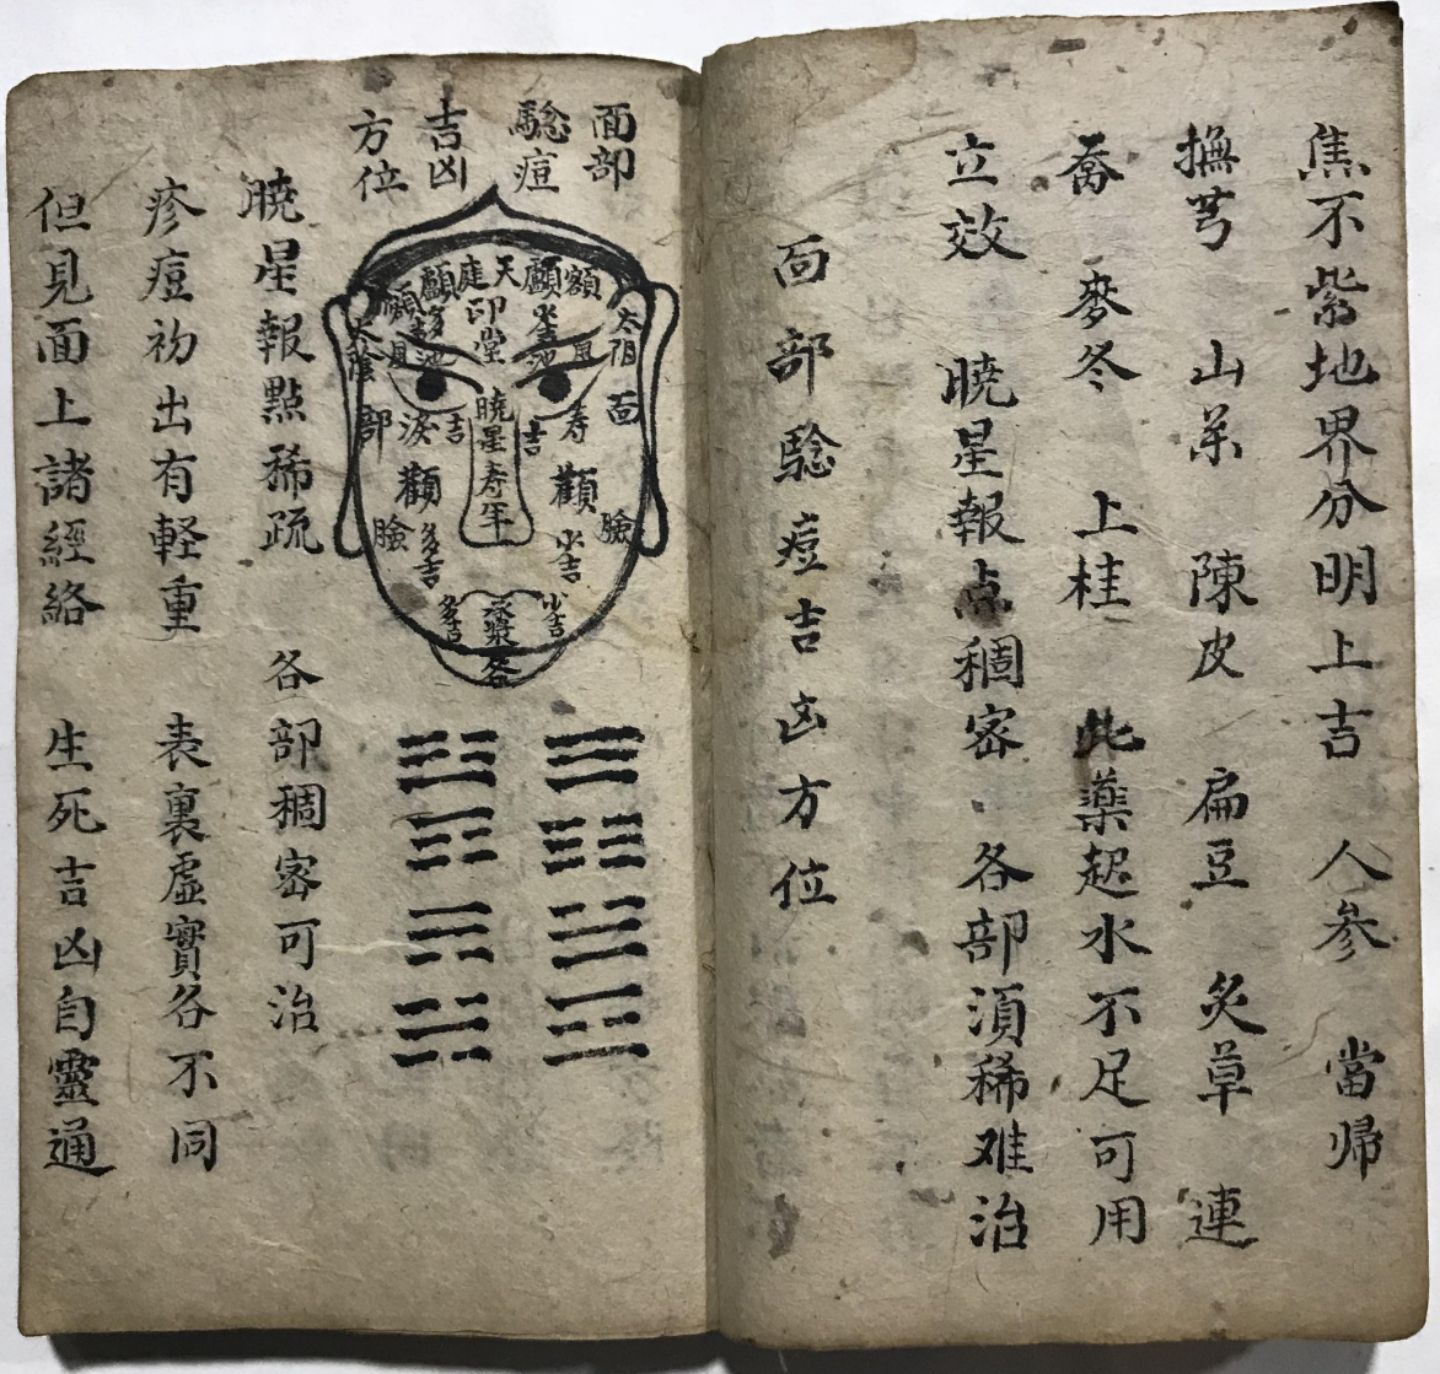 焦不紫地界分明上吉 人參 當帰
撫芎 山茱 陳皮 扁豆 炙草 連
喬 麥冬 上桂 此薬起水不足可用
立效 暁星報点稠密 各部須稀难治
面部驗痘吉凶方位
面部
驗痘
吉凶
方位
額 顱 天庭 顱 額
太陽 印堂 太陰
面 寿 吉 暁星寿年 吉 淚 部
顴 顴
臉 小吉 多吉 臉
小吉 承漿 多吉
暁星報點稀疏 各部稠密可治
疹痘初出有軽重 表裏虛實各不同
但見面上諸經絡 生死吉凶自靈通